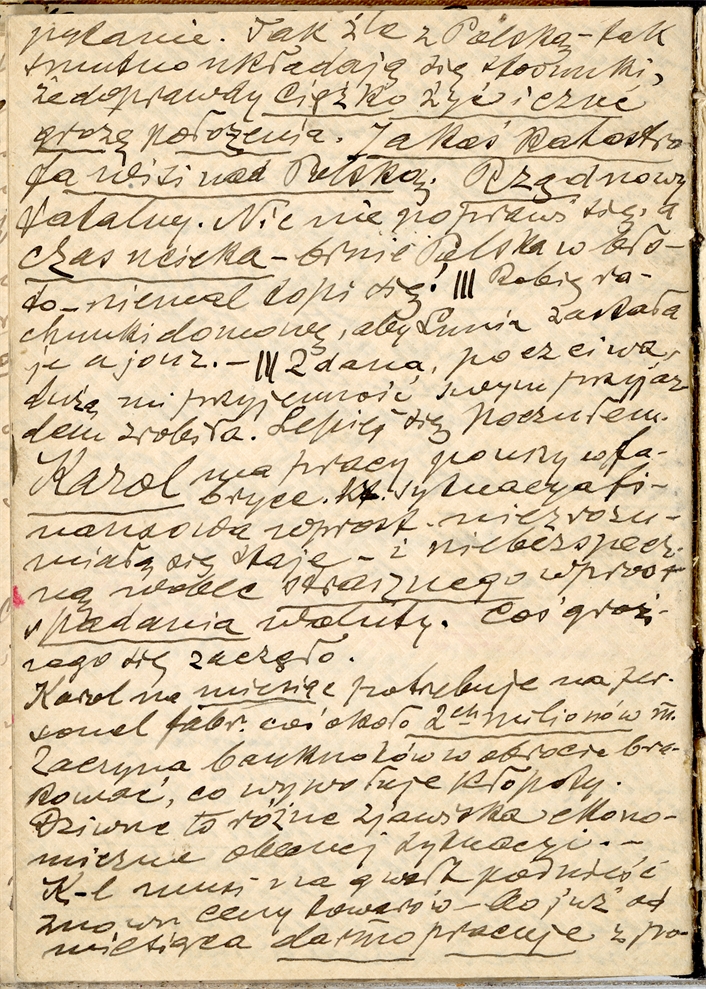 pytanie. Tak źle z Polską – tak
smutno układają się stosunki,
że doprawdy ciężko żyć i czuć
grozę położenia. Jakaś katastro-
fa wisi nad Polską. Rząd nowy
fatalny. Nic nie poprawi się, a
czas ucieka – brnie Polska w bło-
to – niemal topi się! ||| Robię ra-
chunki domowe, aby Lunia zastała
je a jour. – ||| Zdana, poczciwa,
dużą mi przyjemność swym przyjaz-
dem zrobiła. Lepiej się poczułem.
Karol ma pracy powyżej w fa-
bryce. Sytuacya fi-
nansowa wprost niezrozu-
miałą się staje – i niebezpiecz-
ną wobec strasznego wprost
spadania waluty. Coś groź-
nego się zaczęło.
Karol na miesiąc potrzebuje na per-
sonel fabr. coś około 2ch milionów m.
Zaczyna banknotów w obrocie bra-
kować, co wywołuje kłopoty.
Dziwne to różne zjawiska ekono-
miczne obecnej sytuacyi. –
K-l musi na gwałt podnieść
znowu ceny towarów – bo już od
miesiąca darmo pracuje z po-